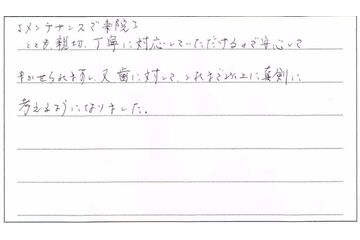 《メンテナンスで来院》
とても親切、丁寧に対応していただけるので安心して
まかせられます。又歯に対して、これまで以上に真剣に
考えるようになりました。